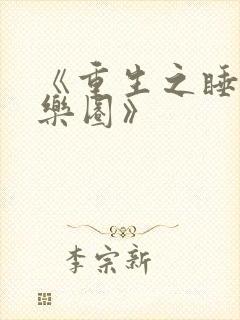 《重生之睡
樂園》
李宗新